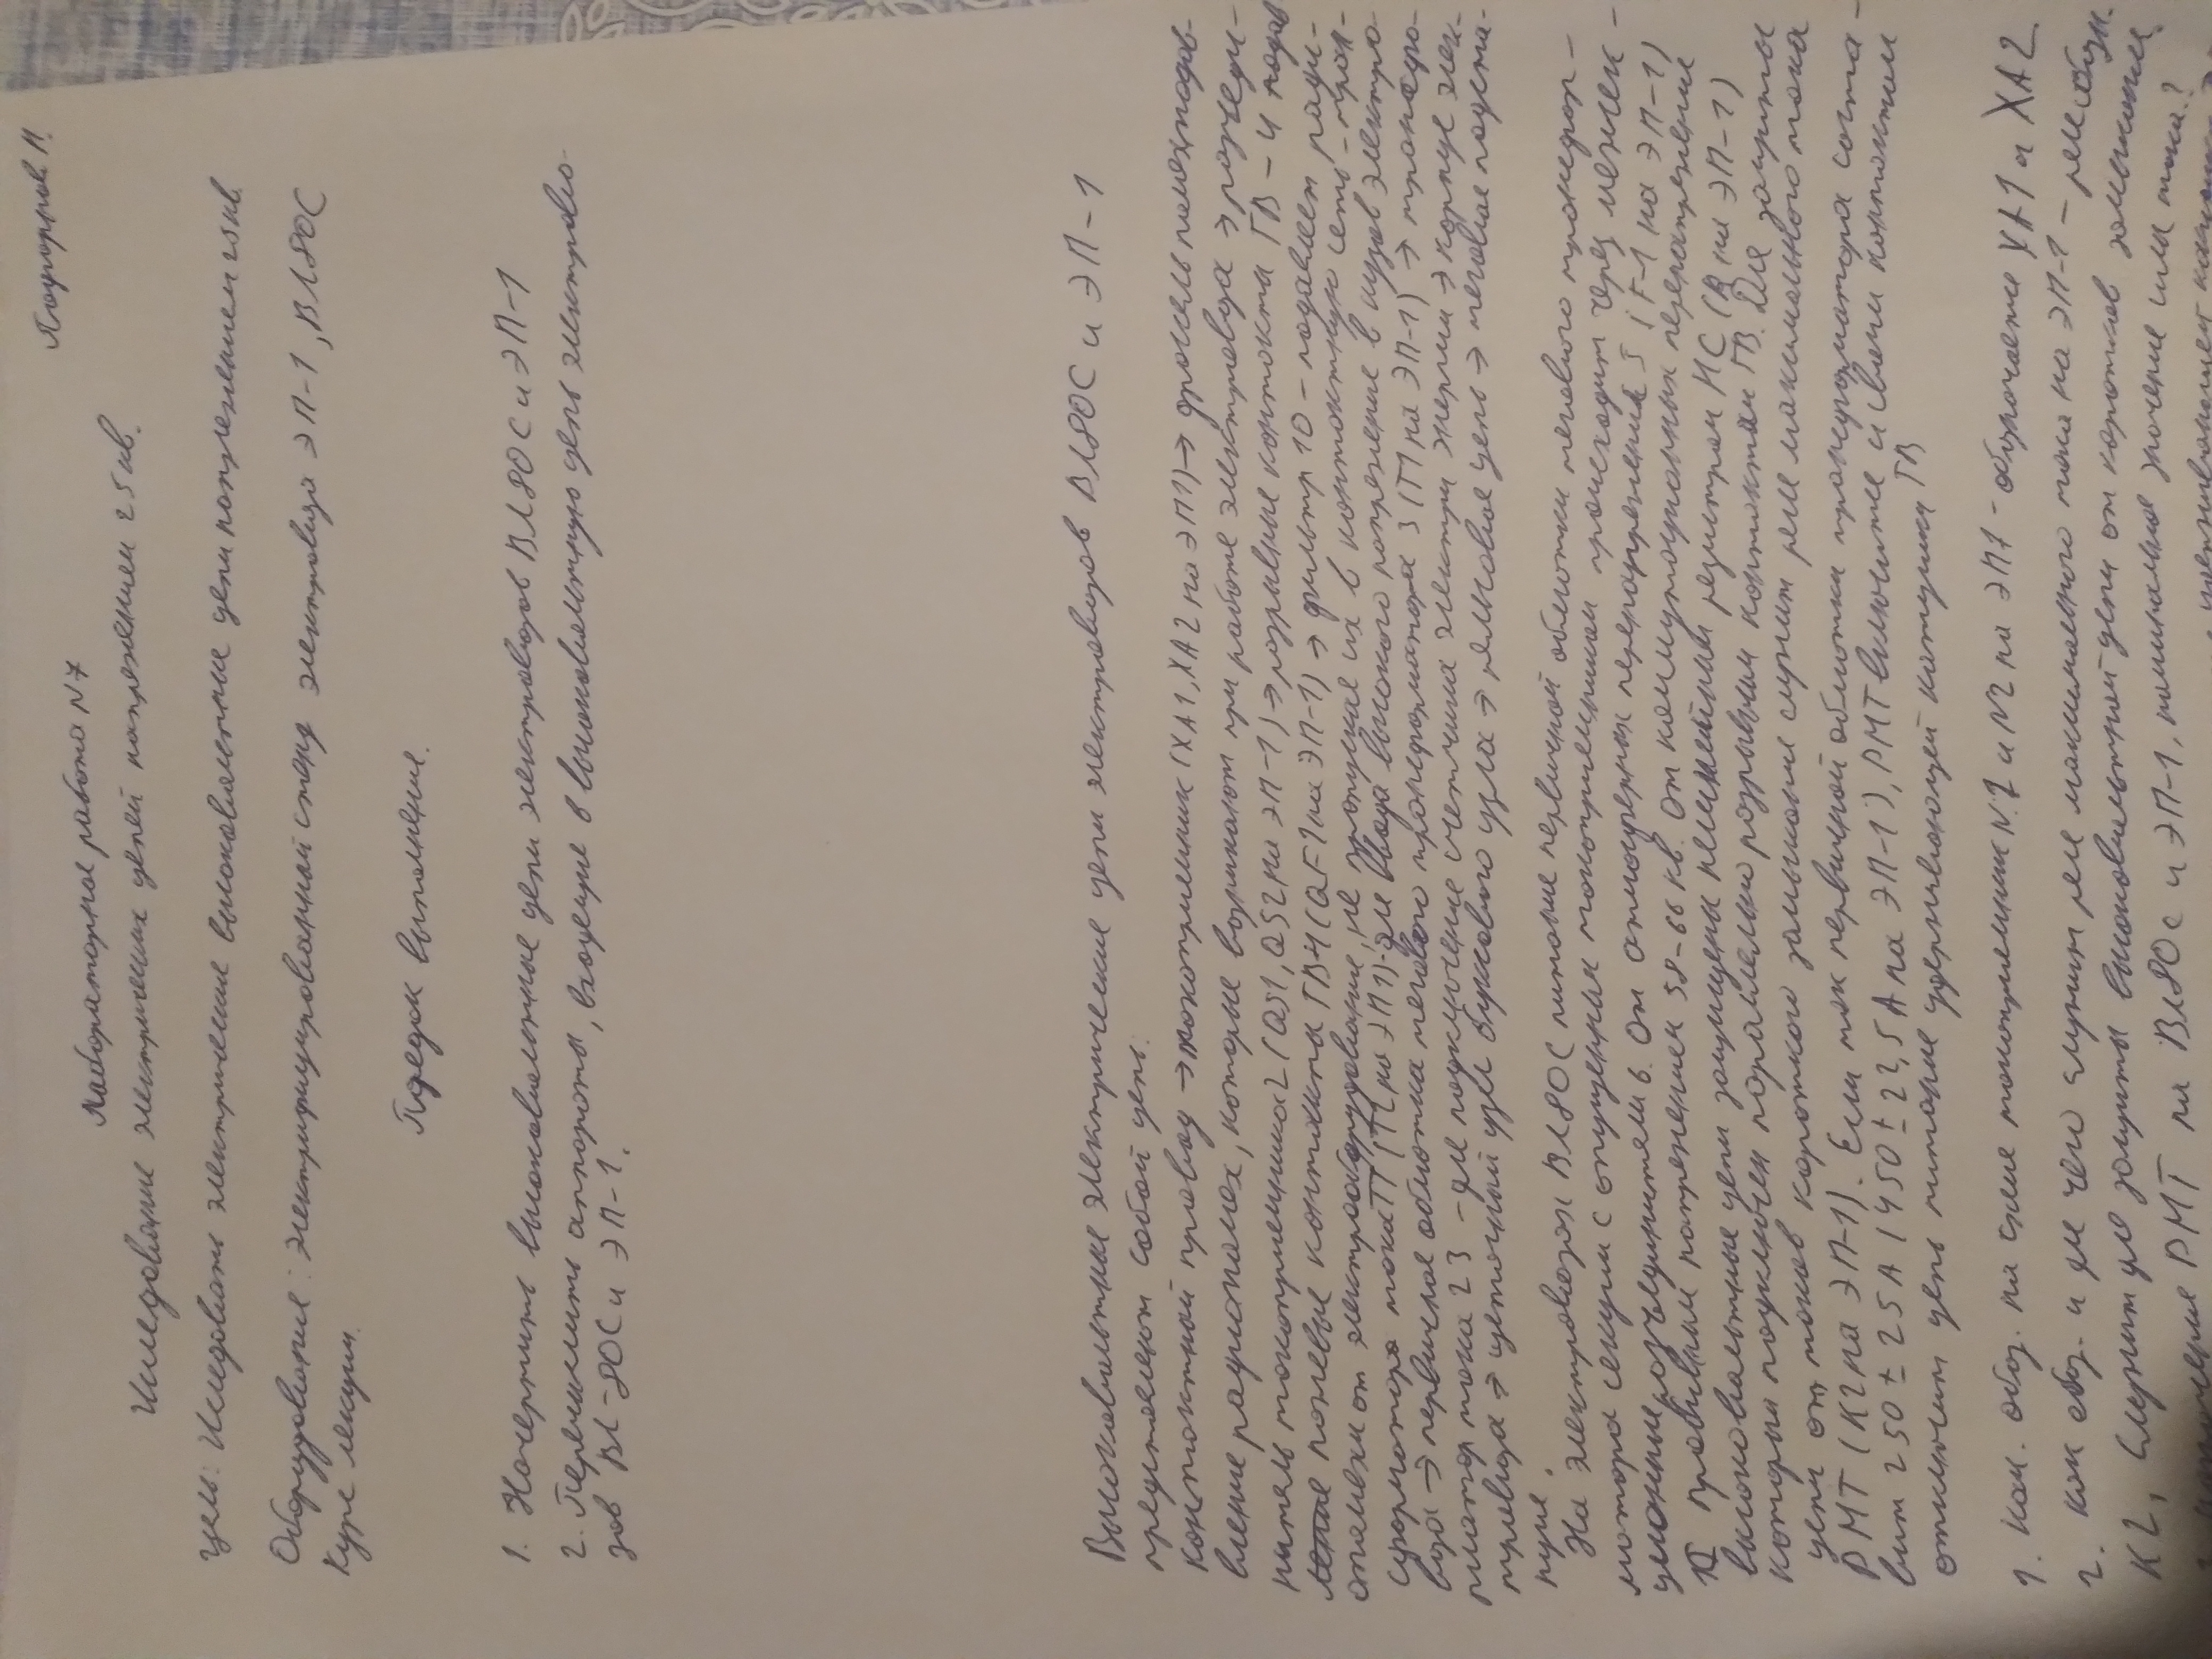 Лабораторная работа N7
Исследование электрических цепей напряжением 25 кв.
Цель: Исследовать электрические высоковольтные цепи напряжением 25 кв
Оборудование: электрифицированный стенд электровоза ЭП-1, ВЛ80С
Порядок выполнения.
1. Начертить высоковольтные цепи электровозов ВЛ80С и ЭП-1
2. Перечислить аппараты, входящие в высоковольтную цепь электрово-
зов ВЛ-80С и ЭП-1.
Высоковольтные электрические цепи электровозов ВЛ80С и ЭП-1
представляют собой цепь:
контактный провод → токоприемник (ХА1, ХА2 на ЭП1) → дроссель помехоподав-
ления радиопомех, которые возникают при работе электровоза → разъеди-
нитель токоприемника 2 (QS1, QS2 на ЭП-1) → разрывные контакты ГВ-4
ножевые контакты ГВ-4 (QF1 на ЭП-1) → фильтр 10 - подавляет ради-
опомехи от электрооборудования, не пропуская их в контактную сеть →
тока 1ТТ (на ЭП1) - для ввода высокого напряжения в кузов электро-
воза → первичная обмотка тягового трансформатора 3 (Т1 на ЭП-1) →
тока 23 - для подключения счетчика электро энергии → корпус элек-
тровоза → щеточный узел буксового узла → рельсовая цепь → тяговая подста-
нция.
На электровозах ВЛ80С питание первичной обмотки тягового трансфор-
матора секции с опущенным токоприемником происходит через межсек-
ционные разъединители 6. От атмосферных перенапряжений 5 (F-1 на ЭП-1)
с пробивным напряжением 58-66 кв. От коммутационных перенапряжений
высоковольтные цепи защищены нелинейным резистром НС (В на ЭП-1)
который подключен параллельно разрывным контактам ГВ. Для защиты
цепи от токов короткого замыкания служит реле максимального тока
РМТ (К2 на ЭП-1). Если ток первичной обмотки трансформатора соста-
вит 250 ± 25А (450 ± 22,5А на ЭП-1), РМТ включится и своими контактами
отключит цепь питания удерживающей катушки ГВ
1. Как. обоз. на схеме токоприемник N:1 и N2 на ЭП1 - обозначаются ХА1 и ХА2
2. как обоз. и для чего служит реле максимального тока на ЭП-1 - реле обозн.
К2, служит для защиты высоковольтной цепи от коротких замыканий
РМТ на ВЛ80С и ЭП-1, номинальное значение силы тока?